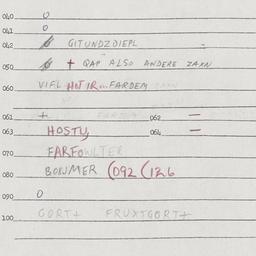 040 0
041 0
042 GITUNDZDIEPL
050 + GAP ALSO ANDERE ZAXN
060 VIFL HOT IR...FARDEM
061 + 062 —
063 HOSTU, 064 —
070 FARFOULTER
080 BONMER (092 (126
090 0
100 GORT+ FRUXTGORT+